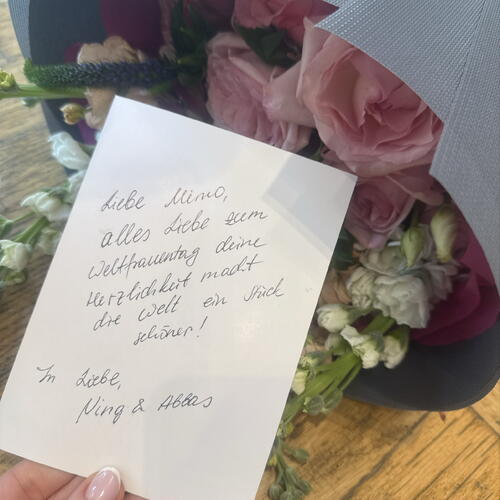 Liebe Mimo,
alles Liebe zum
Weltfrauentag deine
Herzlichkeit macht
die Welt ein Stück
schöner!
In Liebe,
Ning & Abbas